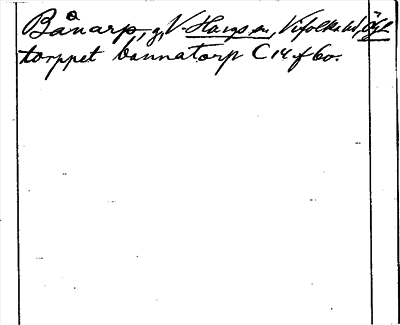 Bånarp, g, V. Hargs sn, Vifolka hd, Ögl.
torppet bonnatorp C 14 f 60.